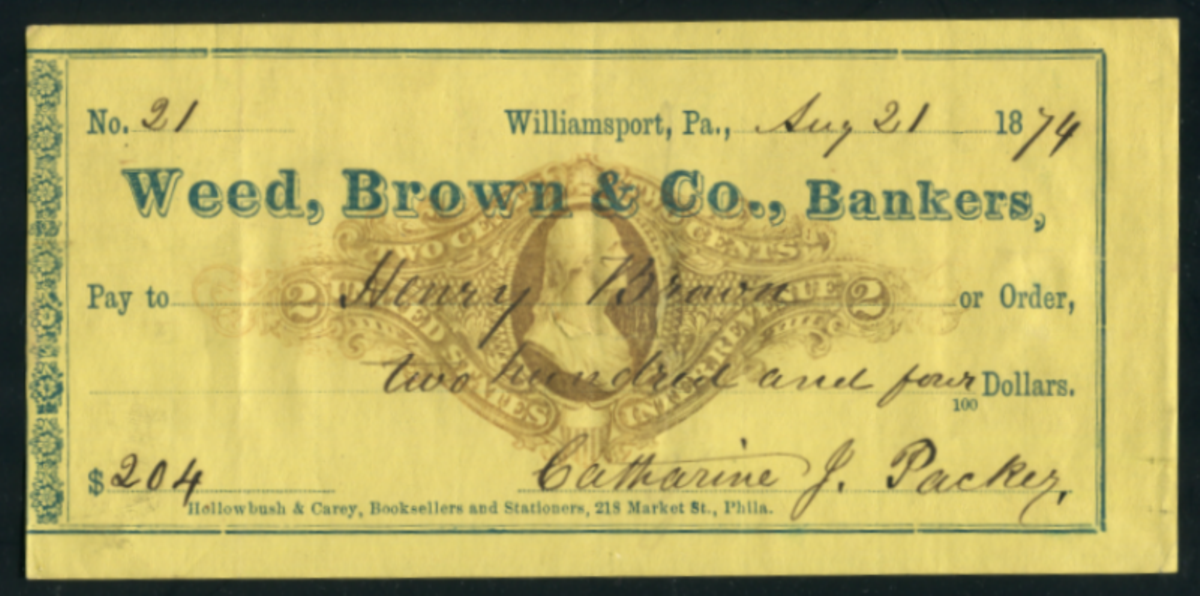 No. 21 Williamsport, Pa., Aug 21 1874
Weed, Brown & Co., Bankers,
TWO CENTS TWO CENTS
Pay to Henry Brown or Order,
2 UNITED STATES INTER. REVENUE 2
two hundred and four Dollars.
100
$204 Catharine J. Packer,
Hollowbush & Carey, Booksellers and Stationers, 218 Market St., Phila.